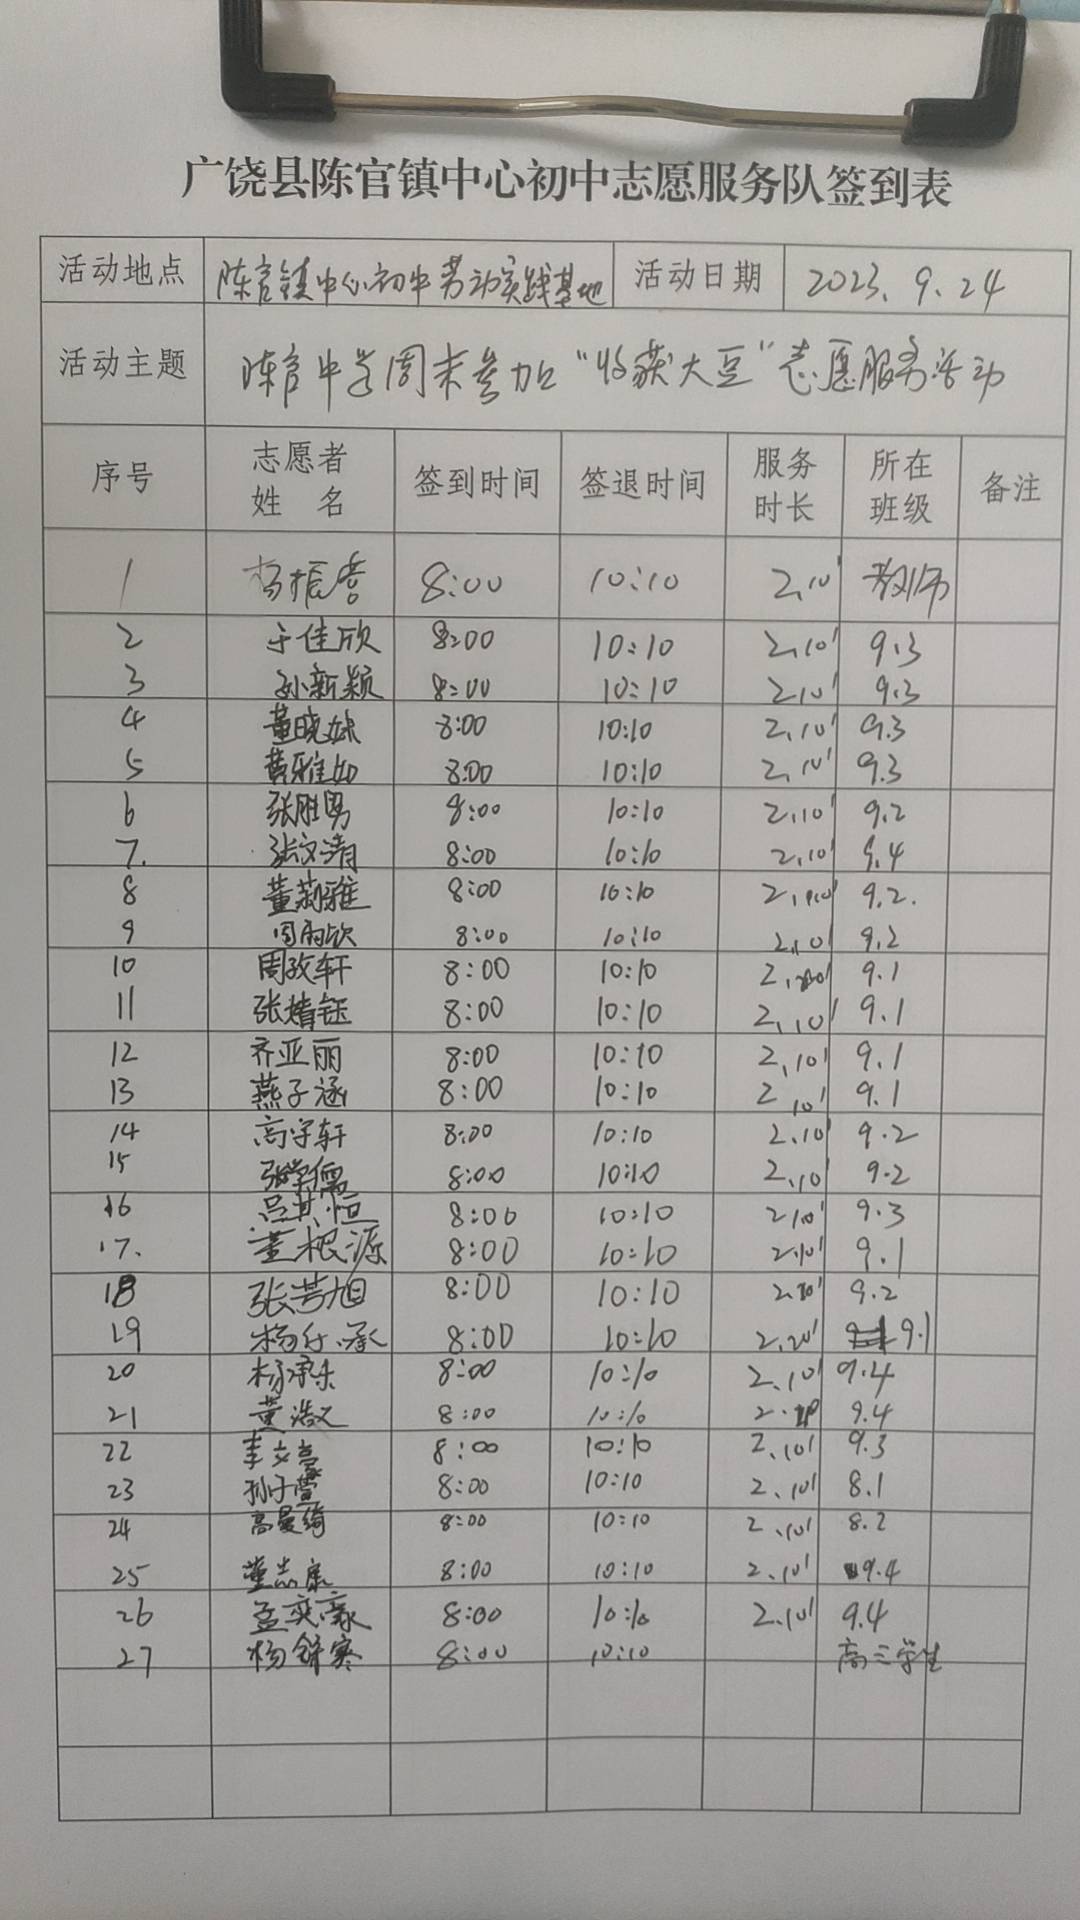 广饶县陈官镇中心初中志愿服务队签到表
活动地点 陈官镇中心初中劳动实践基地 活动日期 2023.9.24
活动主题 陈官中学周末参加“收获大豆”志愿服务活动
序号 志愿者姓名 签到时间 签退时间 服务时长 所在班级 备注
1 杨振 8:00 10:10 2.10' 教师
2 于佳欣 8:00 10:10 2.10' 9.3
3 孙新颖 8:00 10:10 2.10' 9.3
4 董晓妹 8:00 10:10 2.10' 9.3
5 黄雅如 8:00 10:10 2.10' 9.3
6 张胜男 8:00 10:10 2.10' 9.2
7. 张文清 8:00 10:10 2.10' 9.4
8 董莉雅 8:00 10:10 2.10' 9.2.
9 周雨欣 8:00 10:10 2.10' 9.2
10 周政轩 8:00 10:10 2.10' 9.1
11 张婧钰 8:00 10:10 2.10' 9.1
12 齐亚丽 8:00 10:10 2.10' 9.1
13 燕子涵 8:00 10:10 2.10' 9.1
14 高宇轩 8:00 10:10 2.10' 9.2
15 张学儒 8:00 10:10 2.10' 9.2
16 吕其恒 8:00 10:10 2.10' 9.3
17. 董根源 8:00 10:10 2.10' 9.1
18 张芳旭 8:00 10:10 2.10' 9.2
19 杨 承 8:00 10:10 2.20' 9.1
20 杨承乐 8:00 10:10 2.10' 9.4
21 黄浩 8:00 10:10 9.4
22 李文豪 8:00 10:10 2.10' 9.3
23 孙子萱 8:00 10:10 2.10' 8.1
24 高曼绮 8:00 10:10 2.10' 8.2
25 董志康 8:00 10:10 2.10' 9.4
26 孟奕豪 8:00 10:10 2.10' 9.4
27 杨舒寒 8:00 10:10 高三学生